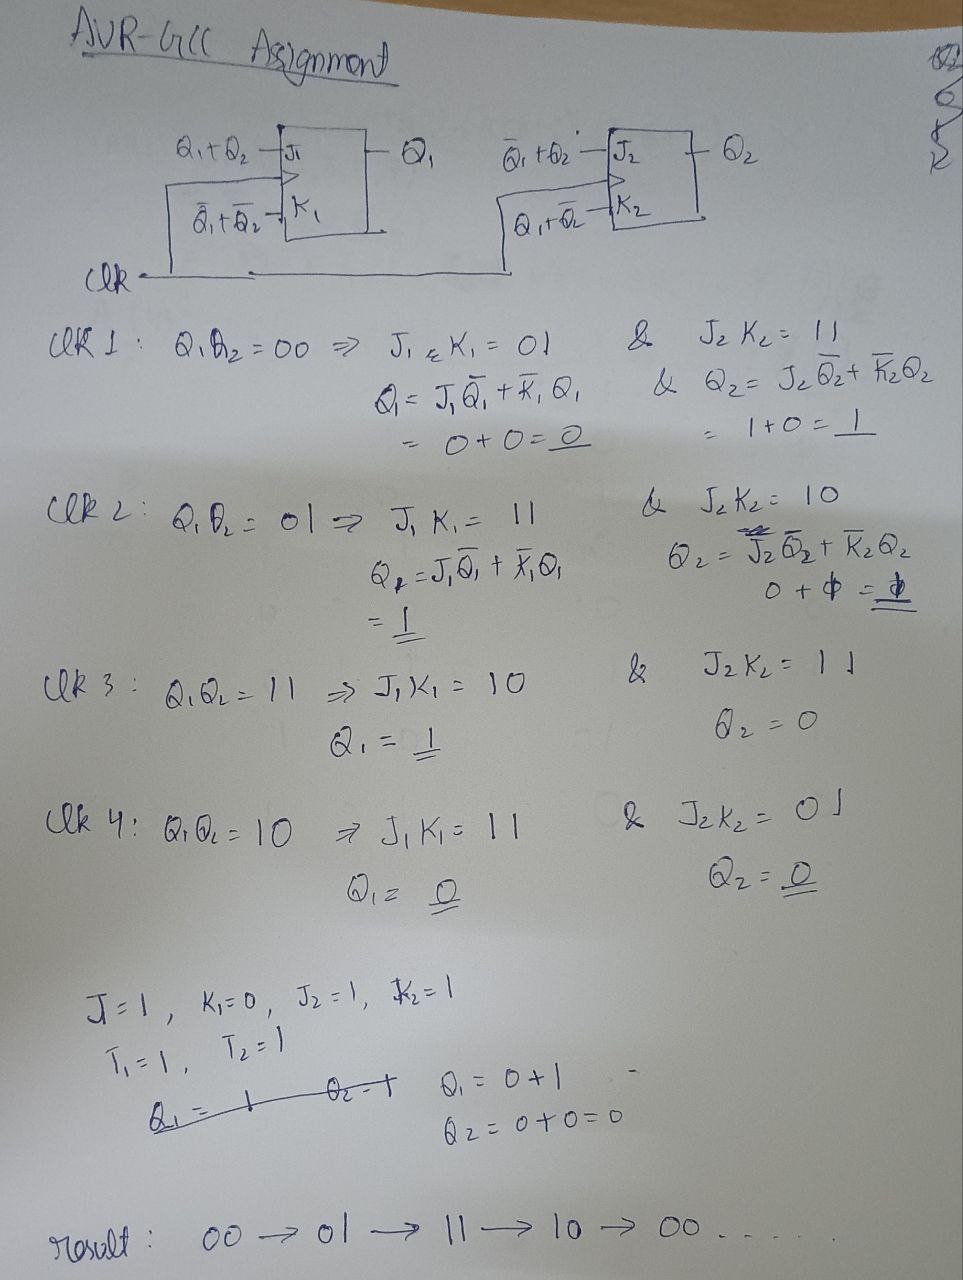 AVR-GCC Assignment
Q₁+Q₂ J₁ Q₁ Q̄₁+Q₂ J₂ Q₂
Q̄₁+Q̄₂ K₁ Q₁+Q̄₂ K₂
Clk
Clk 1: Q₁Q₂ = 00 ⇒ J₁ & K₁ = 01 & J₂ K₂ = 11
Q₁ = J₁Q̄₁ + K̄₁Q₁ & Q₂ = J₂Q̄₂ + K̄₂Q₂
= 0+0 = 0 = 1+0 = 1
Clk 2: Q₁Q₂ = 01 ⇒ J₁ K₁ = 11 & J₂K₂ = 10
Q₁ = J₁Q̄₁ + K̄₁Q₁ Q₂ = J₂Q̄₂ + K̄₂Q₂
= 1 0 + 1 = 1
Clk 3: Q₁Q₂ = 11 ⇒ J₁K₁ = 10 & J₂K₂ = 11
Q₁ = 1 Q₂ = 0
Clk 4: Q₁Q₂ = 10 ⇒ J₁K₁ = 11 & J₂K₂ = 01
Q₁ = 0 Q₂ = 0
J=1, K₁=0, J₂=1, K₂=1
T₁=1, T₂=1
Q₁ = 1 Q₂ = 1 Q₁ = 0+1
Q₂ = 0+0=0
result: 00 → 01 → 11 → 10 → 00 ......